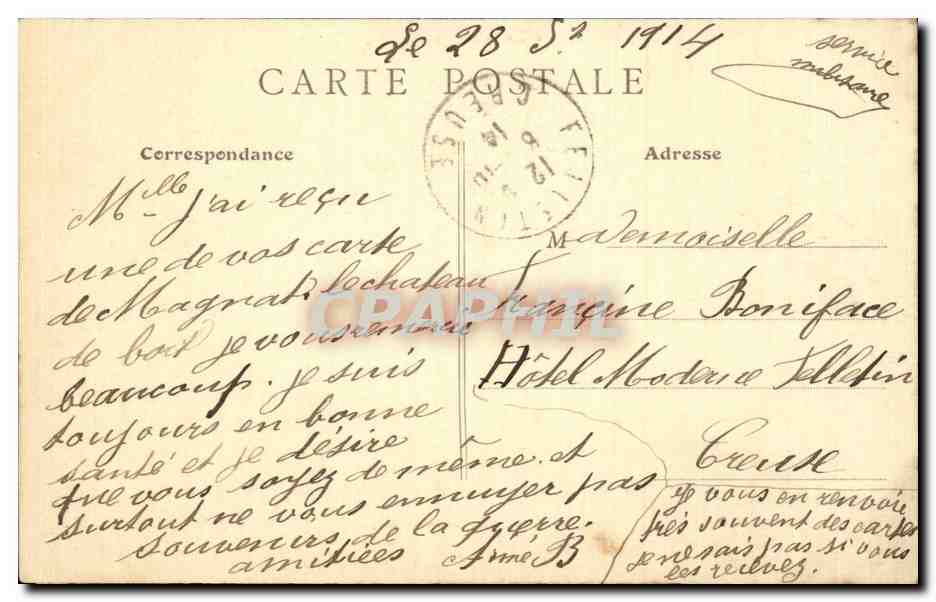 Le 28 S. 1914
service
militaire
CARTE POSTALE
Correspondance
Adresse
FELLETIN
CREUSE
Mlle J'ai reçu
une de vos carte
de Magnat, le chateau
de boit je vous remercie
beaucoup. je suis
toujours en bonne
santé et je désire
que vous soyez de même. et
surtout ne vous ennuyer pas
souvenirs de la guerre.
amitiées Aimé B
Mademoiselle
Françine Boniface
Hôtel Moderne Felletin
Creuse
je vous en renvoie
très souvent des cartes
je ne sais pas si vous
les recevez.
CPAPHIL